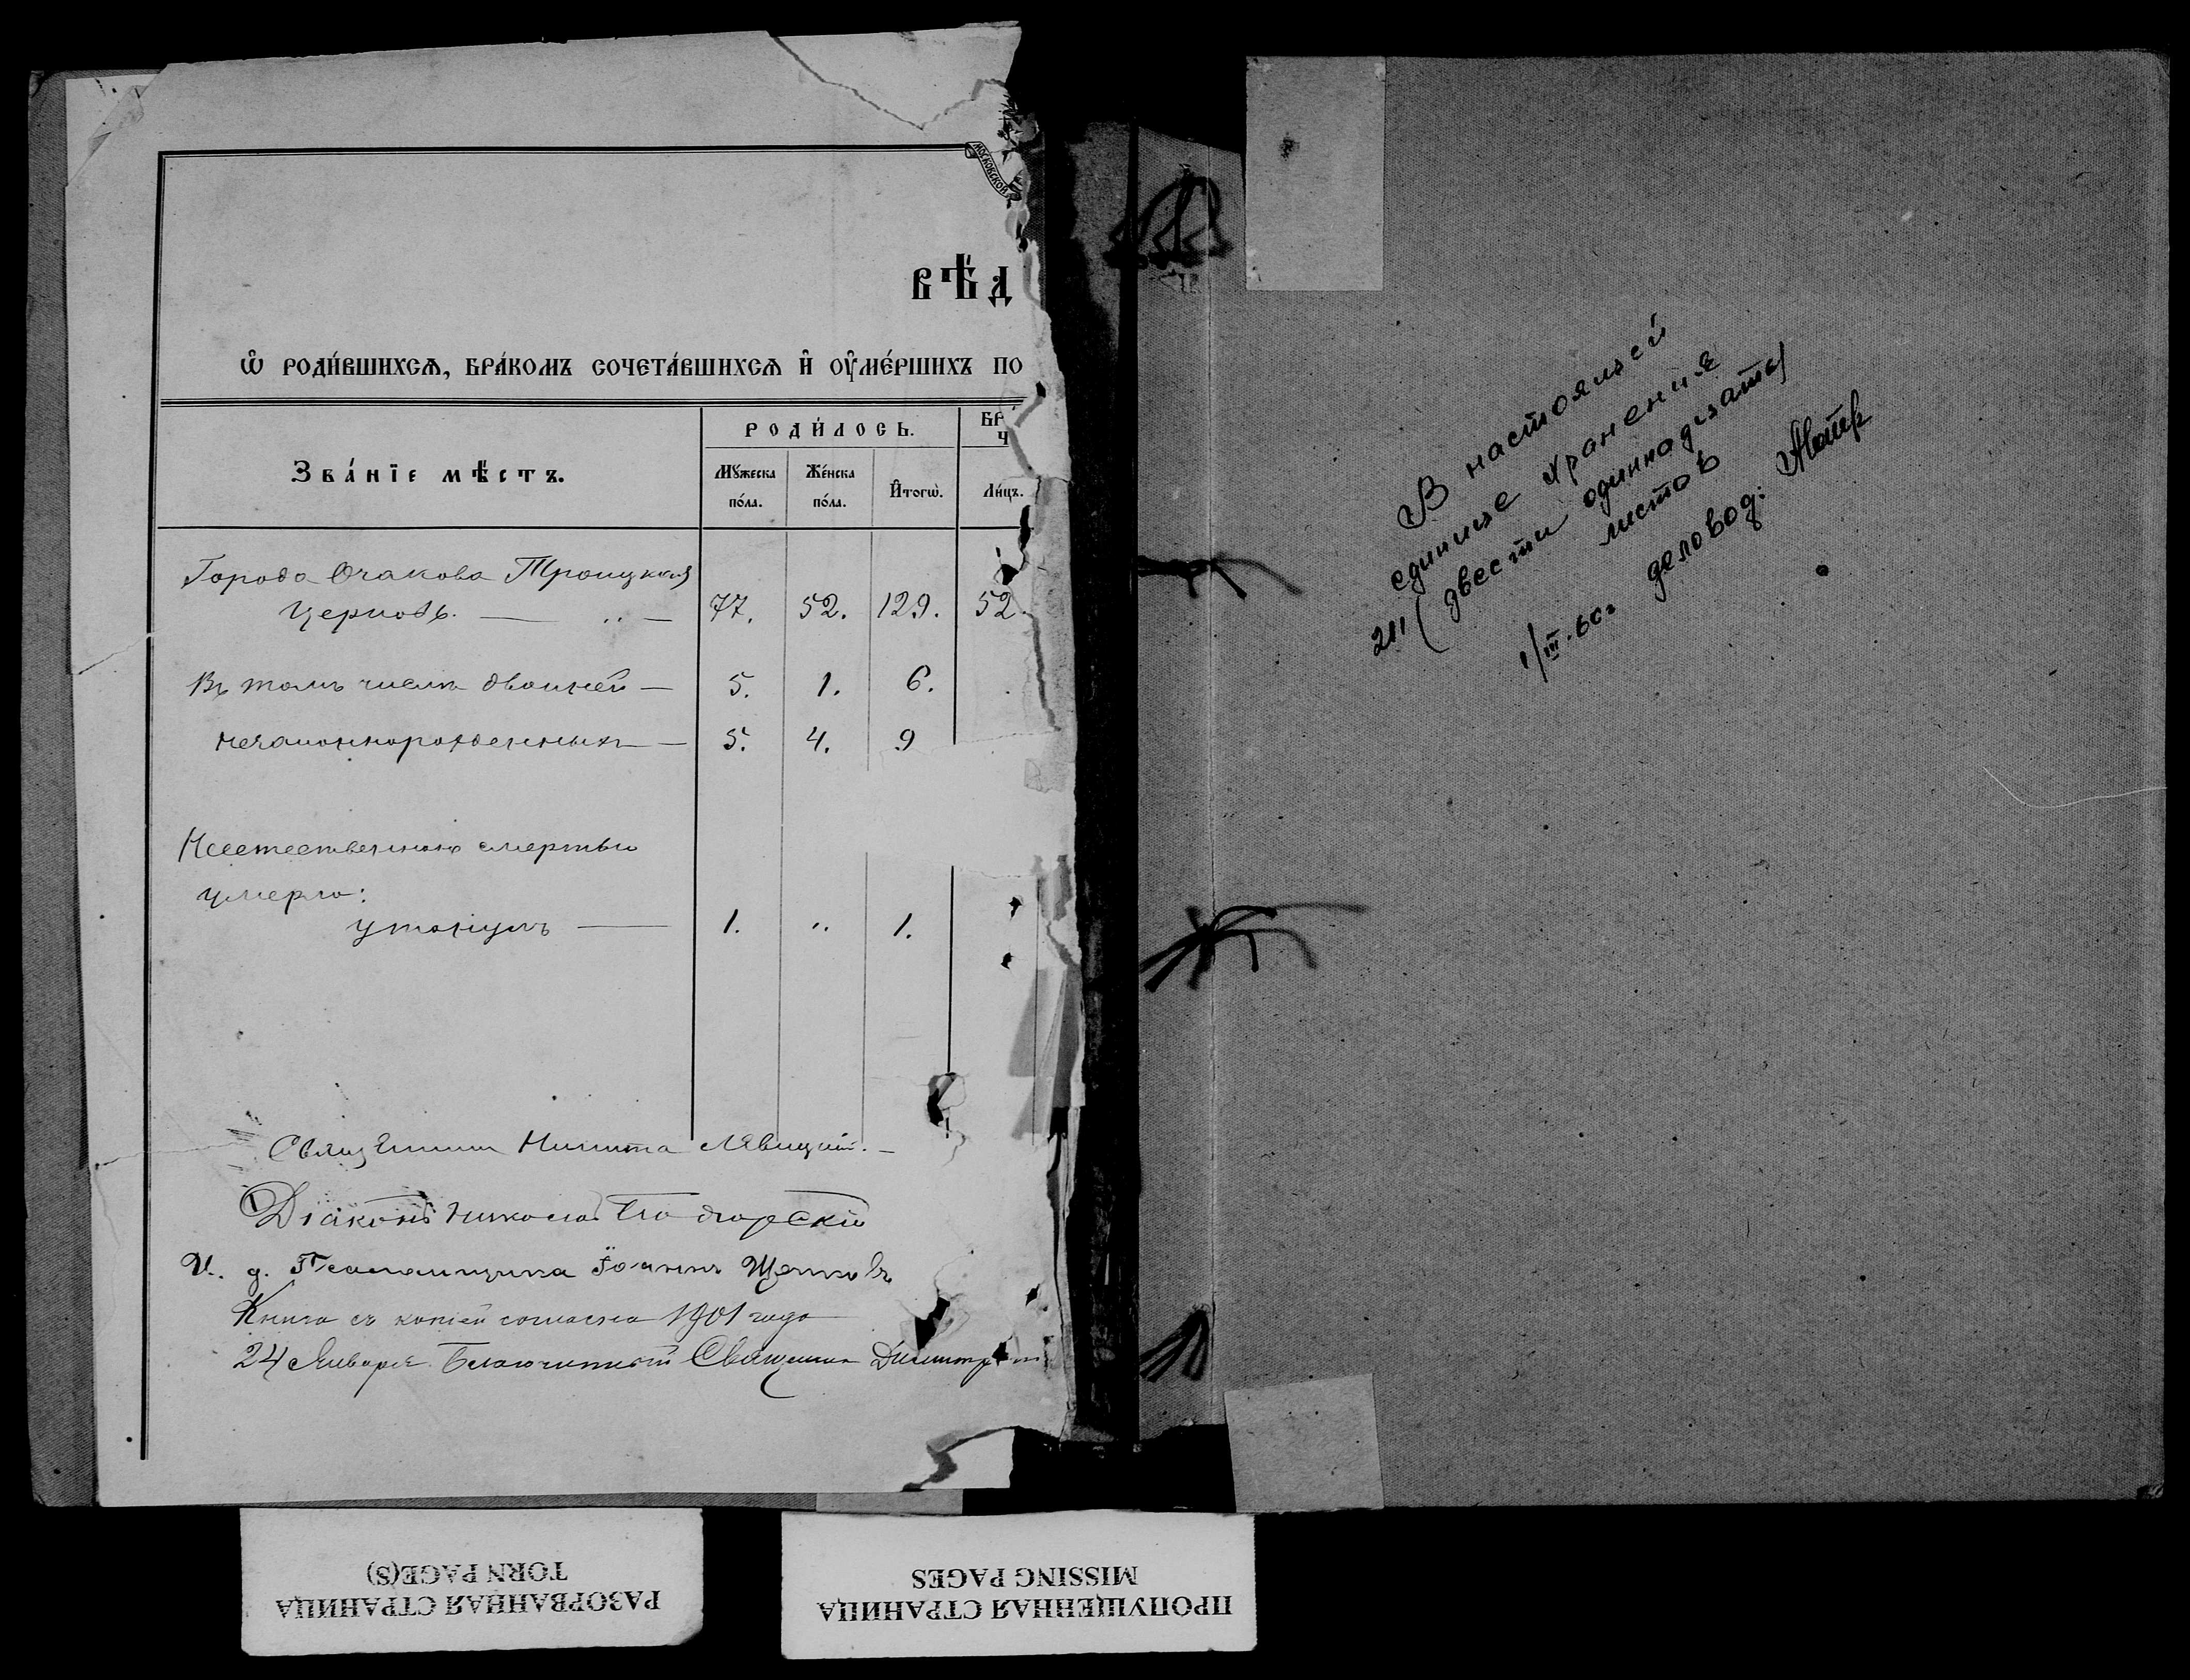 МОСКОВСКОЙ
ВѢ́Д
Ѡ҆ РОДИ́ВШИХСѦ, БРА́КОМЪ СОЧЕТА́ВШИХСѦ И҆ ОУ҆МЕ́РШИХЪ ПО
Зва́нїе мѣ́стъ.
РОДИ́ЛОСЬ.
БР
Ч
Мꙋ́жеска по́ла.
Же́нска по́ла.
И҆тогѡ̀.
Ли́цъ.
Города Очакова Троицкая
Церковь. — „ — 77. 52. 129. 52
Въ томъ числѣ двойней — 5. 1. 6.
незаконнорожденныхъ — 5. 4. 9
Неестественною смертью
умерло:
утонулъ — 1. „ 1.
Священникъ Никита Левицкій. —
Діаконъ Николай Подгорскій
И. д. Псаломщика Іоаннъ Щетковъ
Книга съ копіей согласна 1901 года
24 Января Благочинный Священникъ Димитрій
В настоящей
единице хранения
211 (двести одиннадцать)
листов
1/III.60г деловод:
РАЗОРВАННАЯ СТРАНИЦА
TORN PAGE(S)
ПРОПУЩЕННАЯ СТРАНИЦА
MISSING PAGES